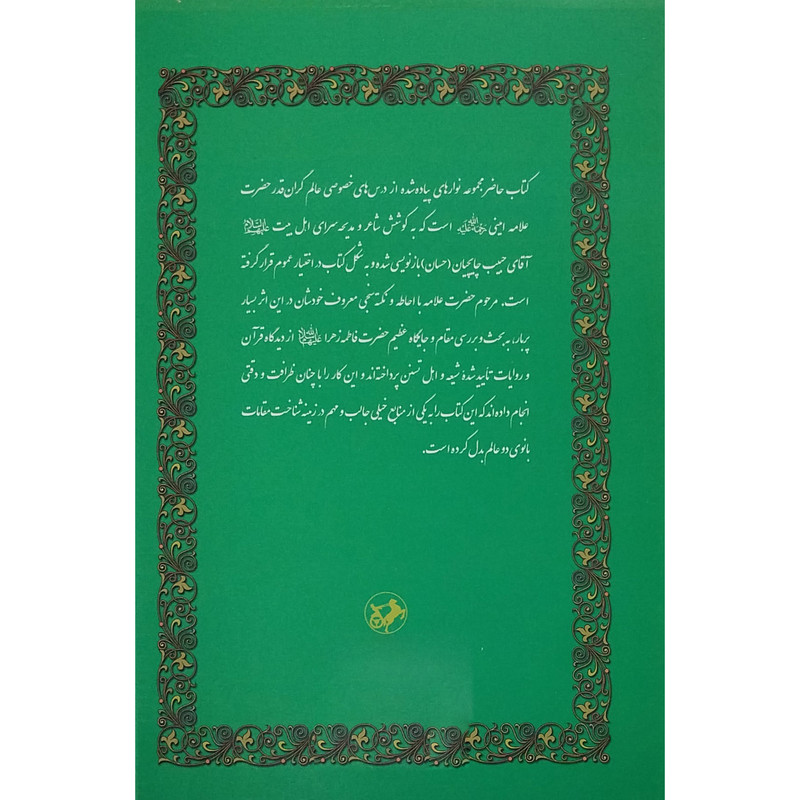 کتاب حاضر مجموعه نوارهای پیاده‌شده از درس‌های خصوصی عالم گران‌قدر حضرت
علامه امینی رحمة‌الله‌علیه است که به کوشش شاعر و مدیحه‌سرای اهل بیت علیهم‌السلام
آقای حبیب چایچیان (حسان) بازنویسی شده و به شکل کتاب در اختیار عموم قرار گرفته
است. مرحوم حضرت علامه با احاطه و نکته‌سنجی معروف خودشان در این اثر بسیار
پربار، به بحث و بررسی مقام و جایگاه عظیم حضرت فاطمه زهرا سلام‌الله‌علیها از دیدگاه قرآن
و روایات تأیید شدهٔ شیعه و اهل تسنن پرداخته‌اند و این کار را با چنان ظرافت و دقتی
انجام داده‌اند که این کتاب را به یکی از منابع خیلی جالب و مهم در زمینه شناخت مقامات
بانوی دو عالم بدل کرده است.